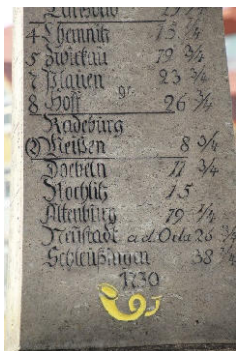 4 Chemnitz 15 ¼
5 Zwickau 19 ¾
7 Plauen 23 ¾
8 Hoff gr. 26 ¾
Radeburg
Meißen 8 ¾
Doebeln 11 ¾
Rochlitz 15
Altenburg 19 ¼
Neustadt a.d.Orla 26 ¾
Schleußingen 38 ¾
1730